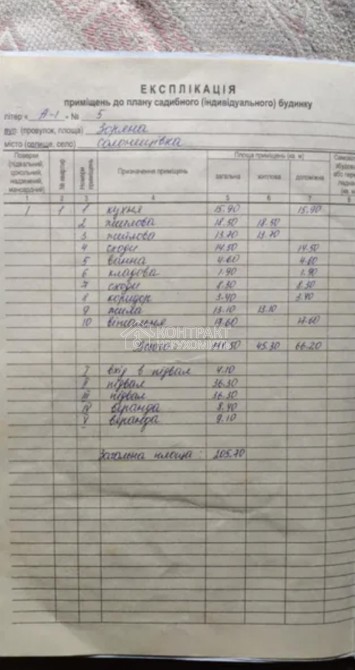 ЕКСПЛІКАЦІЯ
приміщень до плану садибного (індивідуального) будинку
літер « А-1 » - № 5
вул. (провулок, площа) Зоряна
місто (селище, село) Солоницівка
Поверхи (підвальний, цокольний, надземний, мансардний) № квартир Номери приміщень Призначення приміщень Площа приміщень (кв. м) загальна житлова допоміжна
1 2 3 4 5 6 7 8
1 1 1 кухня 15.90 15.90
2 житлова 18.50 18.50
3 житлова 13.70 13.70
4 сходи 14.50 14.50
5 ванна 4.60 4.60
6 кладова 1.90 1.90
7 сходи 8.30 8.30
8 коридор 3.40 3.40
9 жила 13.10 13.10
10 вітальня 17.60 17.60
Всього 111.50 45.30 66.20
КОНТРАКТ
НЕРУХОМІСТЬ
I вхід в підвал 4.10
II підвал 36.30
III підвал 36.30
IV веранда 8.40
V веранда 9.10
Загальна площа: 205.70